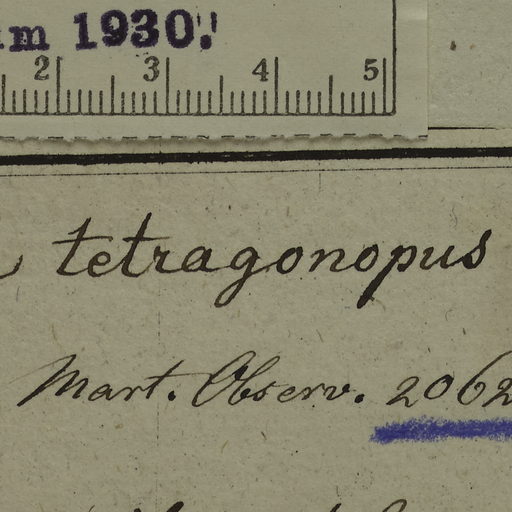 um 1930.
2 3 4 5
tetragonopus
Mart. Observ. 2062